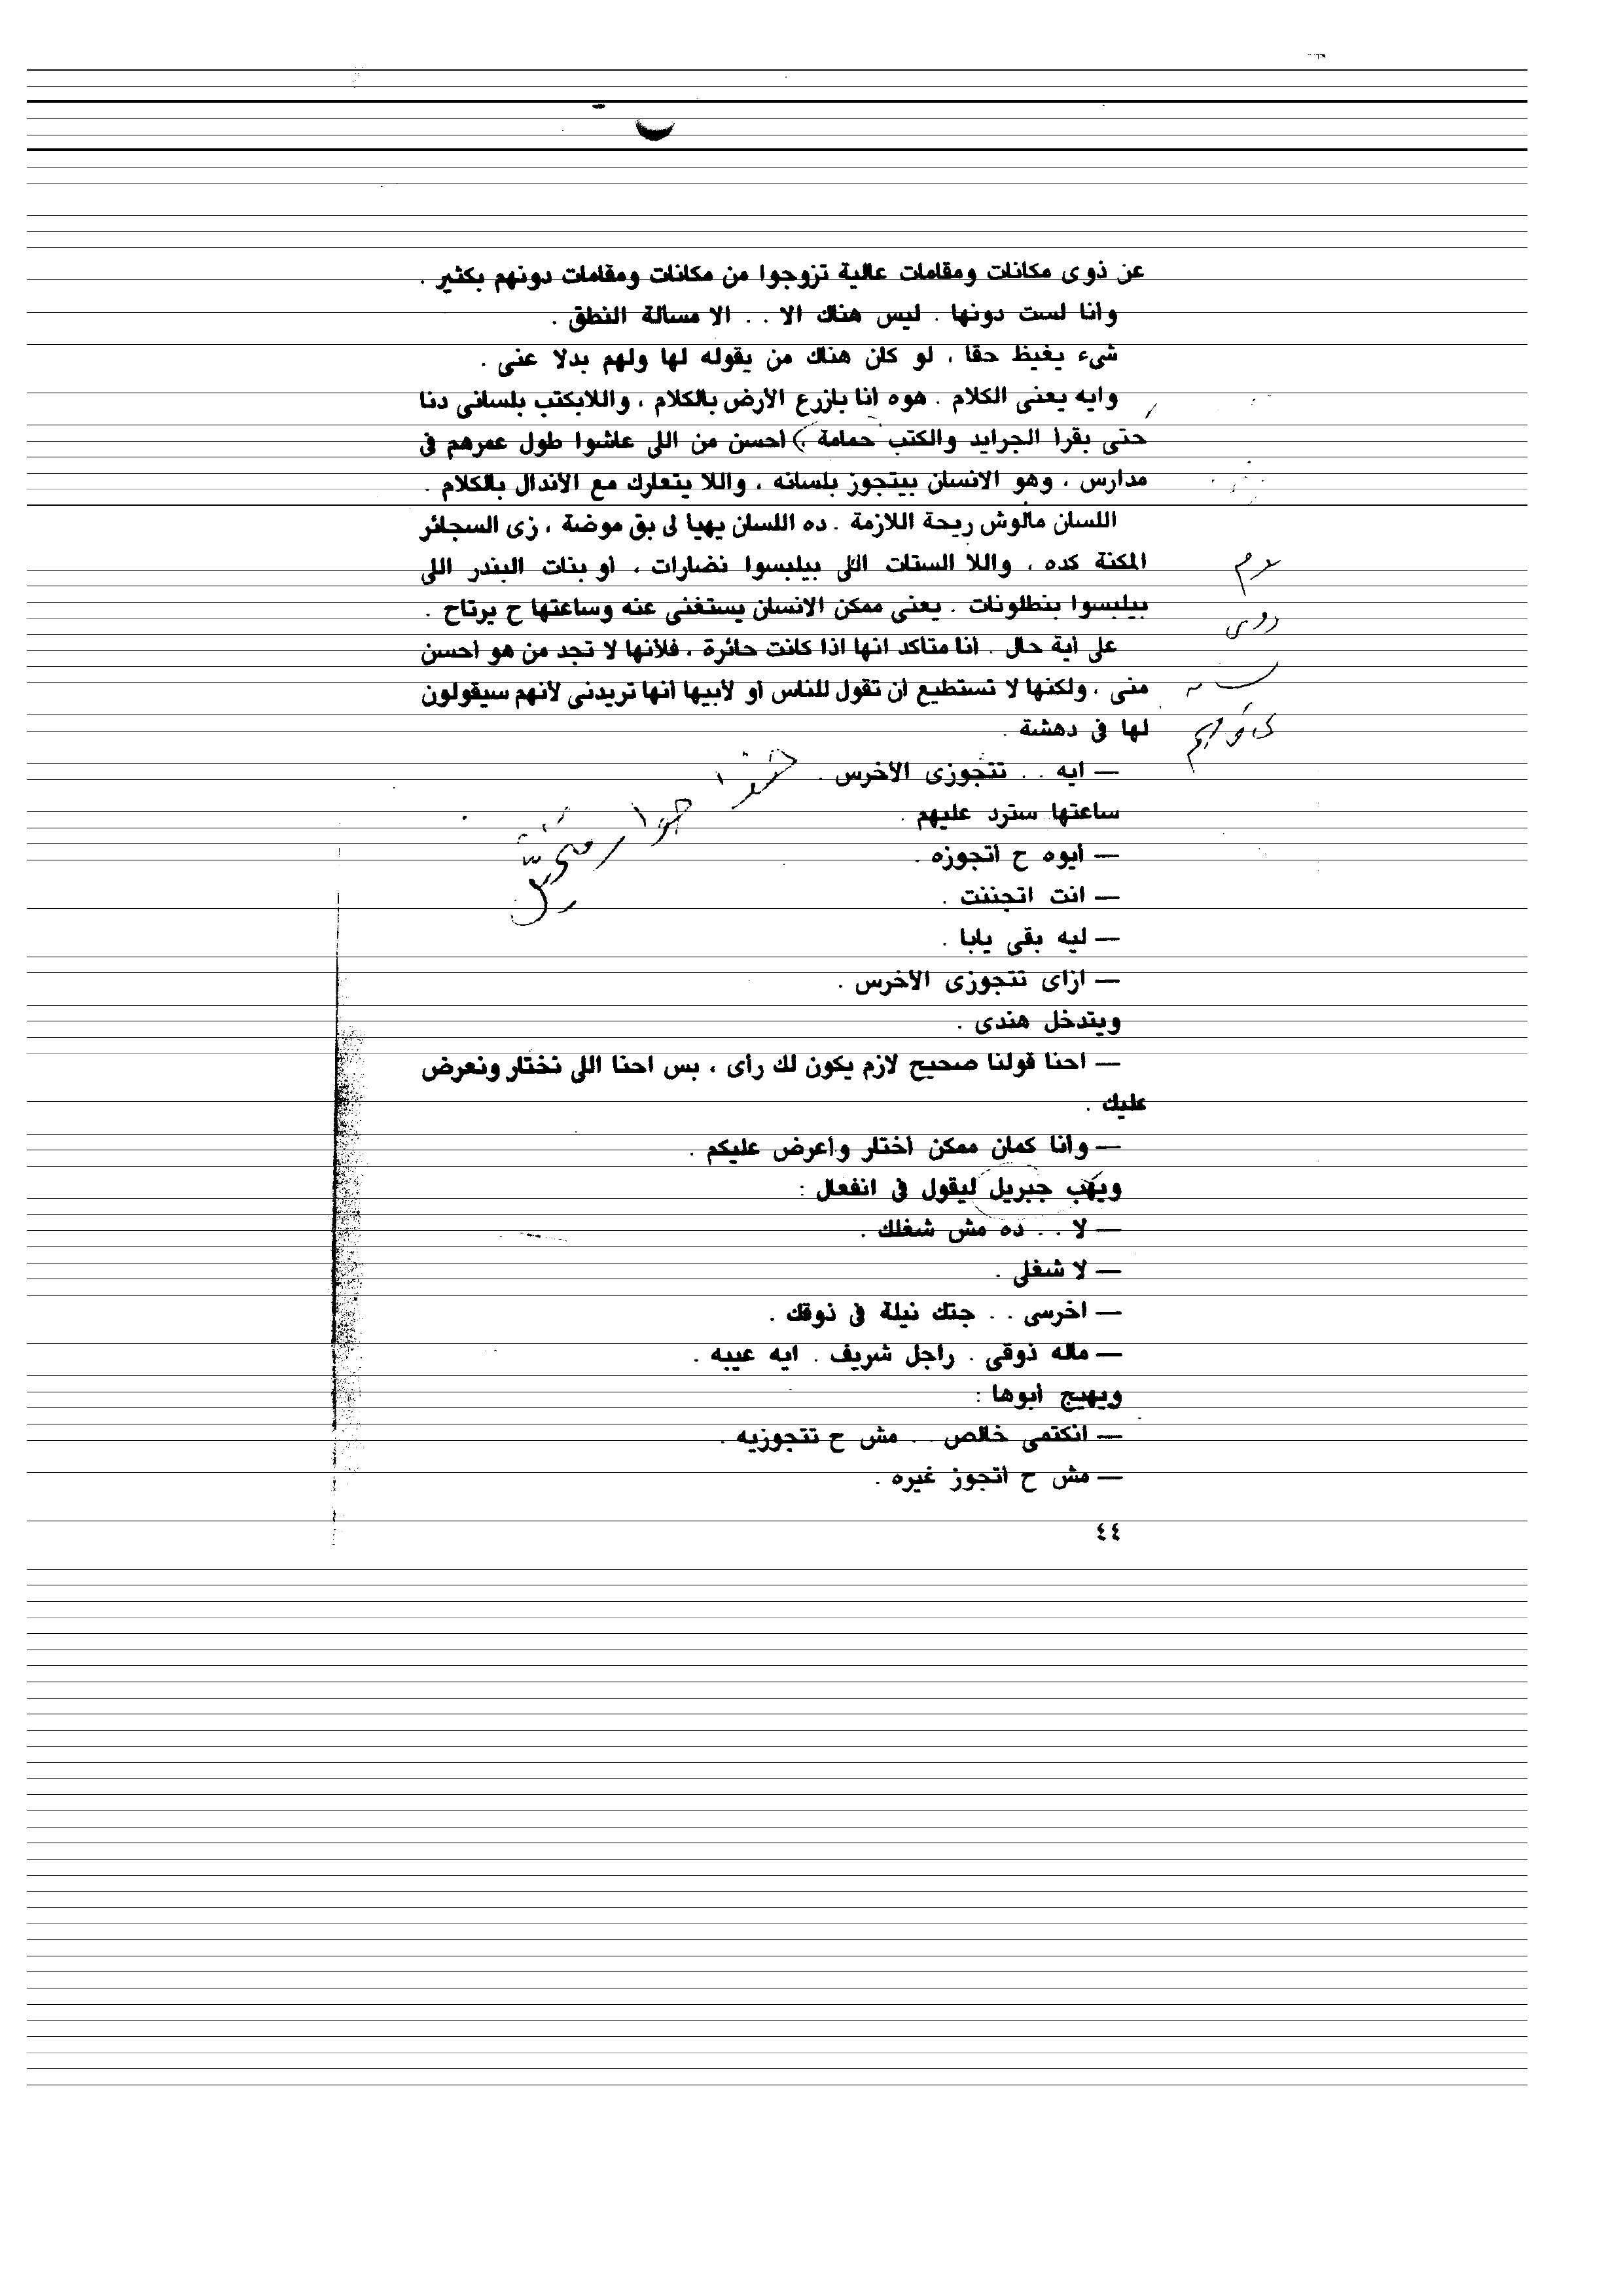 عن ذوى مكانات ومقامات عالية تزوجوا من مكانات ومقامات دونهم بكثير .
وانا لست دونها . ليس هناك الا . . الا مسالة النطق .
شىء يغيظ حقا ، لو كان هناك من يقوله لها ولهم بدلا عنى .
وايه يعنى الكلام . هوه انا بازرع الأرض بالكلام ، واللابكتب بلسانى دنا
حتى بقرا الجرايد والكتب حمامة ) احسن من اللى عاشوا طول عمرهم فى
مدارس ، وهو الانسان بيتجوز بلسانه ، واللا يتعارك مع الأندال بالكلام .
اللسان مالوش ريحة اللازمة . ده اللسان يهيا لى بق موضة ، زى السجائر
المكنة كده ، واللا الستات اللى بيلبسوا نضارات ، أو بنات البندر اللى
بيلبسوا بنطلونات . يعنى ممكن الانسان يستغنى عنه وساعتها ح يرتاح .
على أية حال . أنا متأكد انها اذا كانت حائرة ، فلأنها لا تجد من هو أحسن
منى ، ولكنها لا تستطيع أن تقول للناس أو لأبيها أنها تريدنى لأنهم سيقولون
لها فى دهشة .
— ايه . . تتجوزى الأخرس .
ساعتها سترد عليهم .
— أيوه ح أتجوزه .
— انت اتجننت .
— ليه بقى يابا .
— ازاى تتجوزى الأخرس .
ويتدخل هندى .
— احنا قولنا صحيح لازم يكون لك رأى ، بس احنا اللى نختار ونعرض
عليك .
— وأنا كمان ممكن أختار وأعرض عليكم .
ويهب جبريل ليقول فى انفعال :
— لا . . ده مش شغلك .
— لا شغلى .
— اخرسى . . جتك نيلة فى ذوقك .
— ماله ذوقى . راجل شريف . ايه عيبه .
ويهيج أبوها :
— انكتمى خالص . . مش ح تتجوزيه .
— مش ح اتجوز غيره .
٤٤